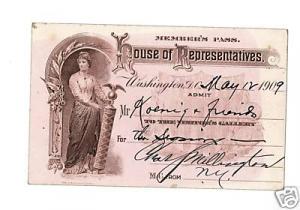 MEMBER'S PASS.
House of Representatives.
Washington, D.C. May 12 1909
ADMIT
Mr Koenig & friends
TO THE MEMBER'S GALLERY
For the Session
Chas. S. Millington
N.Y.
M.C. FROM